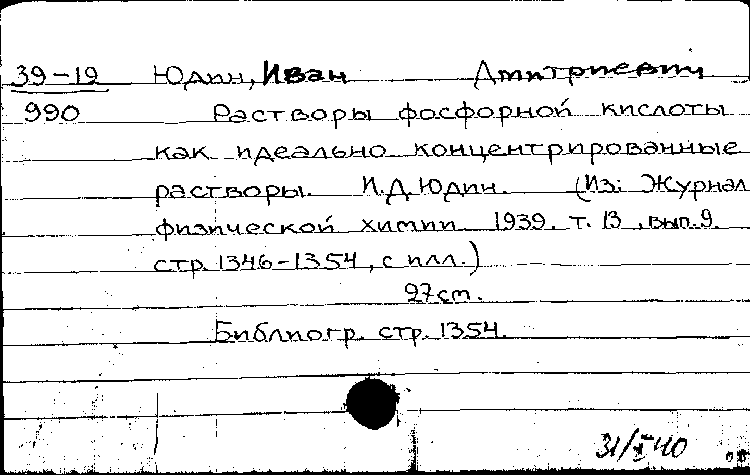 39-19 Юдин, Иван Дмитриевич
990 Растворы фосфорной кислоты
как идеально концентрированные
растворы. И.Д.Юдин. (Из: Журнал
физической химии 1939. т. 13, вып.9.
стр. 1346-1354, с илл.)
27 cm.
Библиогр. стр. 1354.
31/I 40